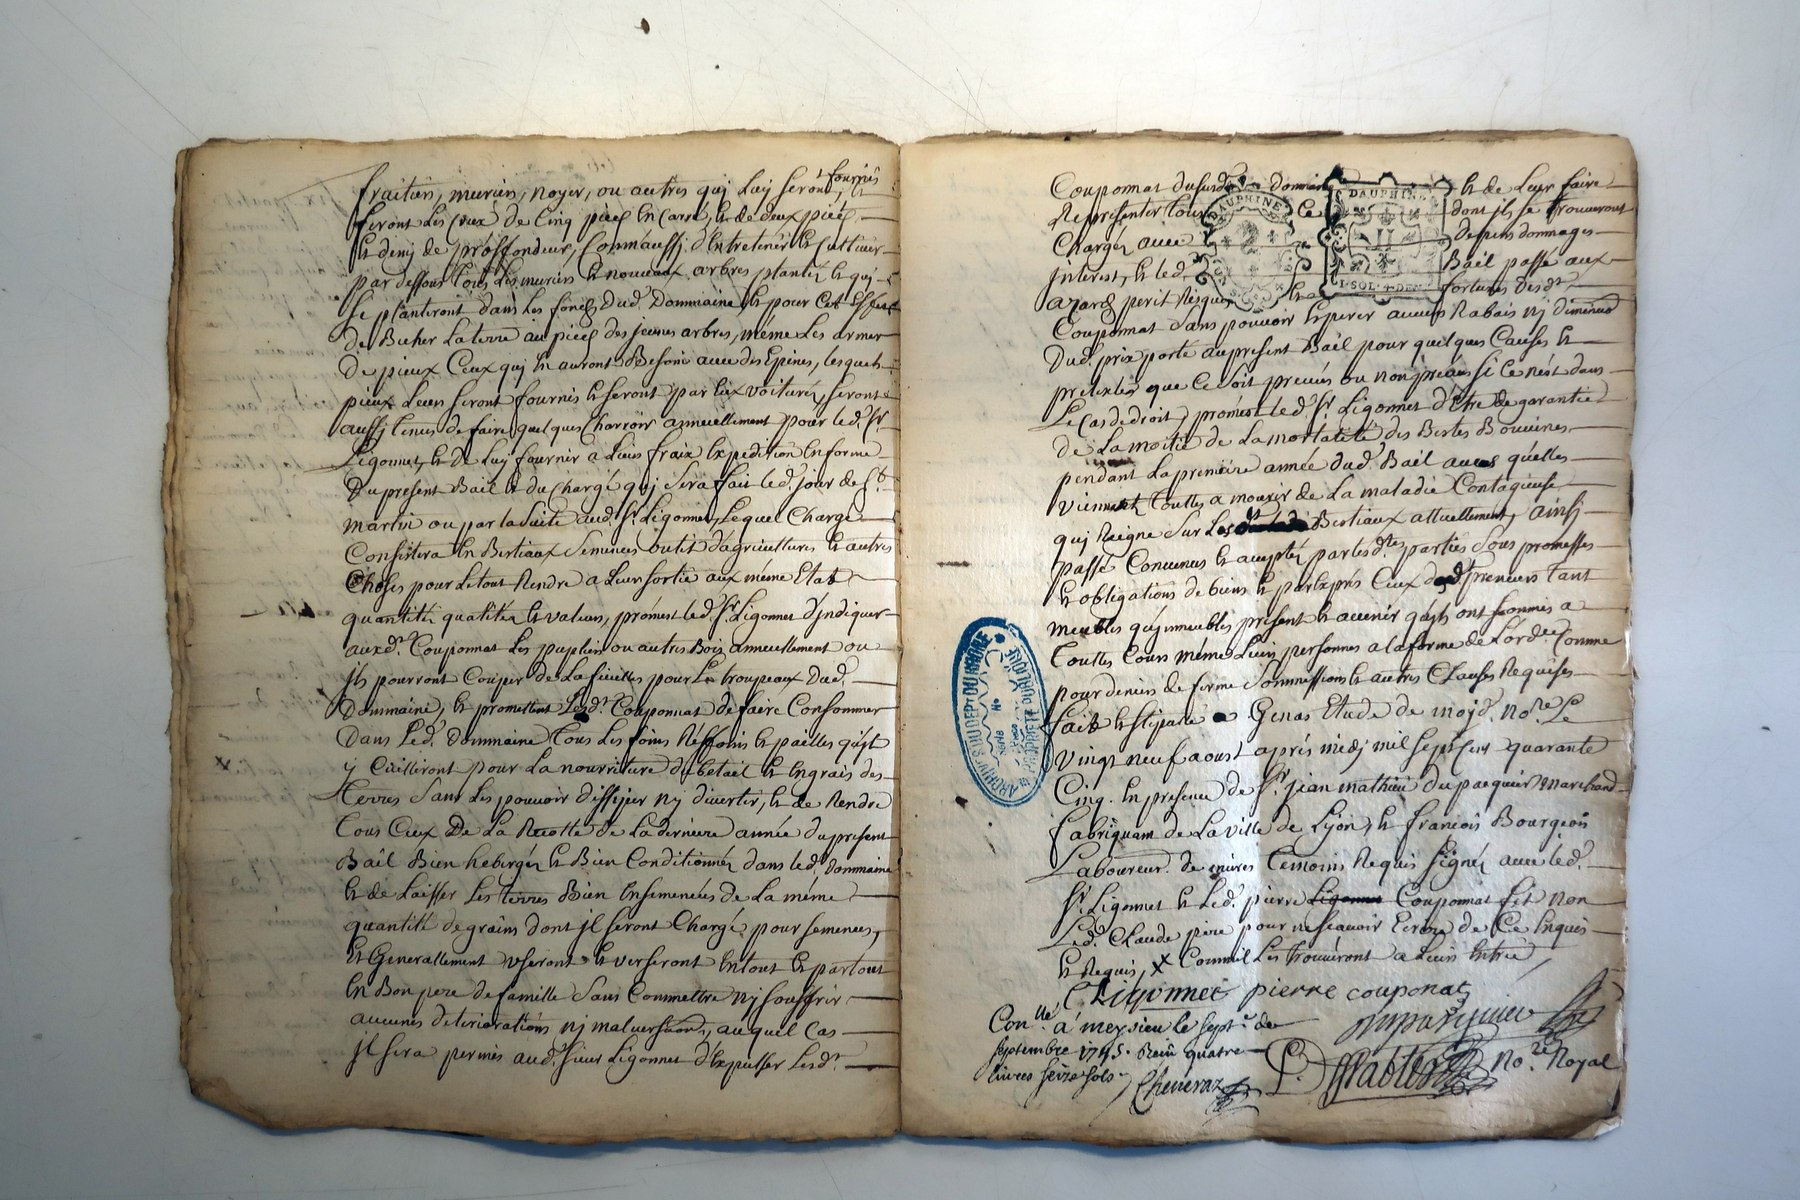 fraitiers, muriers, noyer, ou autres quj Luy seront fournis
feront Les Creux de Cinq pieds En Carré, & de deux pieds
& demj de proffondeur, Comm'aussj d'Entretenir & Cultiver
par dessous tous Les muriers & nouveaux arbres plantés & quj
se planteront dans Les fonds Dud. Dommaine, & pour Cet Effect
de Bucher La terre au pied des jeunes arbres, même Les armer
De pieux Ceux quj En auront Besoin avec des Epines, lesquels
pieux Leur seront fournis & seront par Eux voiturés, seront
aussj tenus de faire quelques Charrois annuellement pour led. Sr.
Ligonnet, & De Luy fournir a Leurs fraix Expedition En forme
Du present Bail & du Chargé quj sera fait led. jour de St.
martin ou par la suite aud. Sr. Ligonnet, Lequel Chargé
Consistera En Bestiaux semences outils d'agricultures & autres
Choses pour Le tout Rendre a Leur sortie aux même Etat
quantité qualités & valeur, promet led. Sr. Ligonnet d'jndiquer
auxd. Couponnat Les pupliers ou autres Bois annuellement ou
jls pourront Couper de La fieuilles pour Le troupeaux Dud.
Dommaine, & promettent Lesd. Couponnat de faire Consommer
Dans Led. Dommaine tous Les foins & pailles qu'jls
y Cuilliront pour La nourriture du betail & Engrais des
terres sans Les pouvoir nj divertir, & de Rendre
tous Ceux De La Recolte de La derniere année du present
Bail Bien hebergés & Bien Conditionnés dans led. Dommaine
& de Laisser Les terres Bien Ensemencées de La même
quantité de grains dont jl seront Chargé pour semences,
& Generallement useront & verseront En tout & partout
En Bon pere de famille sans Commettre nj souffrir
aucunes deteriorations nj malversations, auquel Cas
jl sera permis aud. sieur Ligonnet d'Expulser Lesd.
Couponnat dususd. Dommaine & de Leur faire
Representer tous Ce dont jls se trouveront
Chargés avec Depens dommages
Interest, & led. Bail passé aux
azards peril Risques & fortunes desd.
Couponnat sans pouvoir Esperer aucun Rabais nj
Dud. prix porté au present Bail pour quelques Causes &
pretextes que Ce soit preveus ou non preveus si Ce n'est dans
Le Cas de droit, promet led. Sr. Ligonnet d'être de garantie
de La moitié de La mortalité des Bestes Bouvines
pendant La premiere année dud. Bail au cas qu'elles
viennent toutes a mourir de La maladie Contagieuse
quj Reigne sur Les Bestiaux attuellement, ainsj
passé Convenu & accepté par lesd. parties sous promesses
& obligations de biens & par Exprés Ceux desd. preneurs tant
meubles qu'jmmeubles present & avenir qu'jls ont soumis a
touttes Cours meme Leurs personnes a la forme de L'ord.ce Comme
pour deniers de ferme soummissions & autres Clauses Requises
fait & stipulé a Genas Etude de moyd. nore. Le
vingt neuf aoust aprés midj mil sept Cent quarante
Cinq. En presence de Sr. jean mathieu Dupasquier Marchand
fabriquant de La ville de Lyon, & francois Bourgeois
Laboureur de temoins Requis signés avec led.
Sr. Ligonnet & Led. pierre Ligonnet Couponnat fils non
Led. Claude pere pour ne scavoir Ecrire de Ce Enquis
& Requis, x Comm'il Les trouveront a Leurs Entrée,
Ligonnet pierre couponat
Con.llé á meysieu le sept.e de
septembre 1745. Receu quatre
livres seize sols.
Dupasquier
Nore. Royal
DAUPHINE
DAUPHINE
II
1.SOL.4.DEN.
ARCHIVES DU DEP. DU RHONE